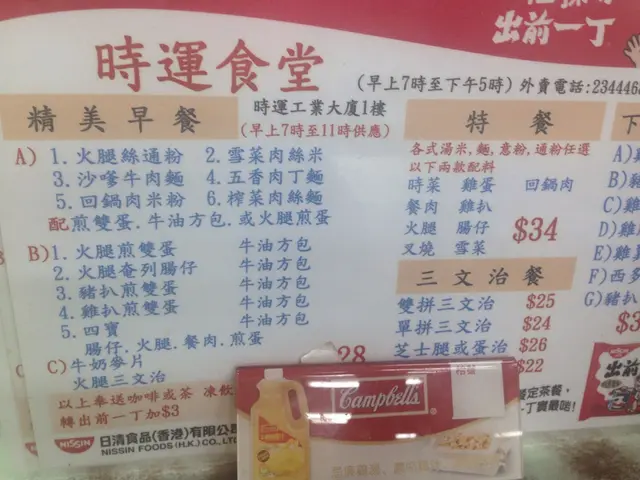 出前一丁
時運食堂
(早上7時至下午5時) 外賣電話:2344468
精美早餐
時運工業大廈1樓
(早上7時至11時供應)
A) 1. 火腿絲通粉 2. 雪菜肉絲米
3. 沙嗲牛肉麵 4. 五香肉丁麵
5. 回鍋肉米粉 6. 榨菜肉絲麵
配煎雙蛋.牛油方包.或火腿煎蛋
B) 1. 火腿煎雙蛋 牛油方包
2. 火腿奄列腸仔 牛油方包
3. 豬扒煎雙蛋 牛油方包
4. 雞扒煎雙蛋 牛油方包
5. 四寶 牛油方包
腸仔.火腿.餐肉.煎蛋
C) 牛奶麥片
火腿三文治
28
以上奉送咖啡或茶 凍飲
轉出前一丁加$3
NISSIN 日清食品(香港)有限公
NISSIN FOODS (H.K.) CO., LT
特餐
各式湯米,麵,意粉,通粉任選
以下兩款配料
時菜 雞蛋 回鍋肉
餐肉 雞扒
火腿 腸仔
叉燒 雪菜
$34
三文治餐
雙拼三文治 $25
單拼三文治 $24
芝士腿或蛋治 $26
$22
Campbell's
下
A)
B)
C)
D)
E)
F) 西多
G) 豬扒
$3
出前
NISSIN